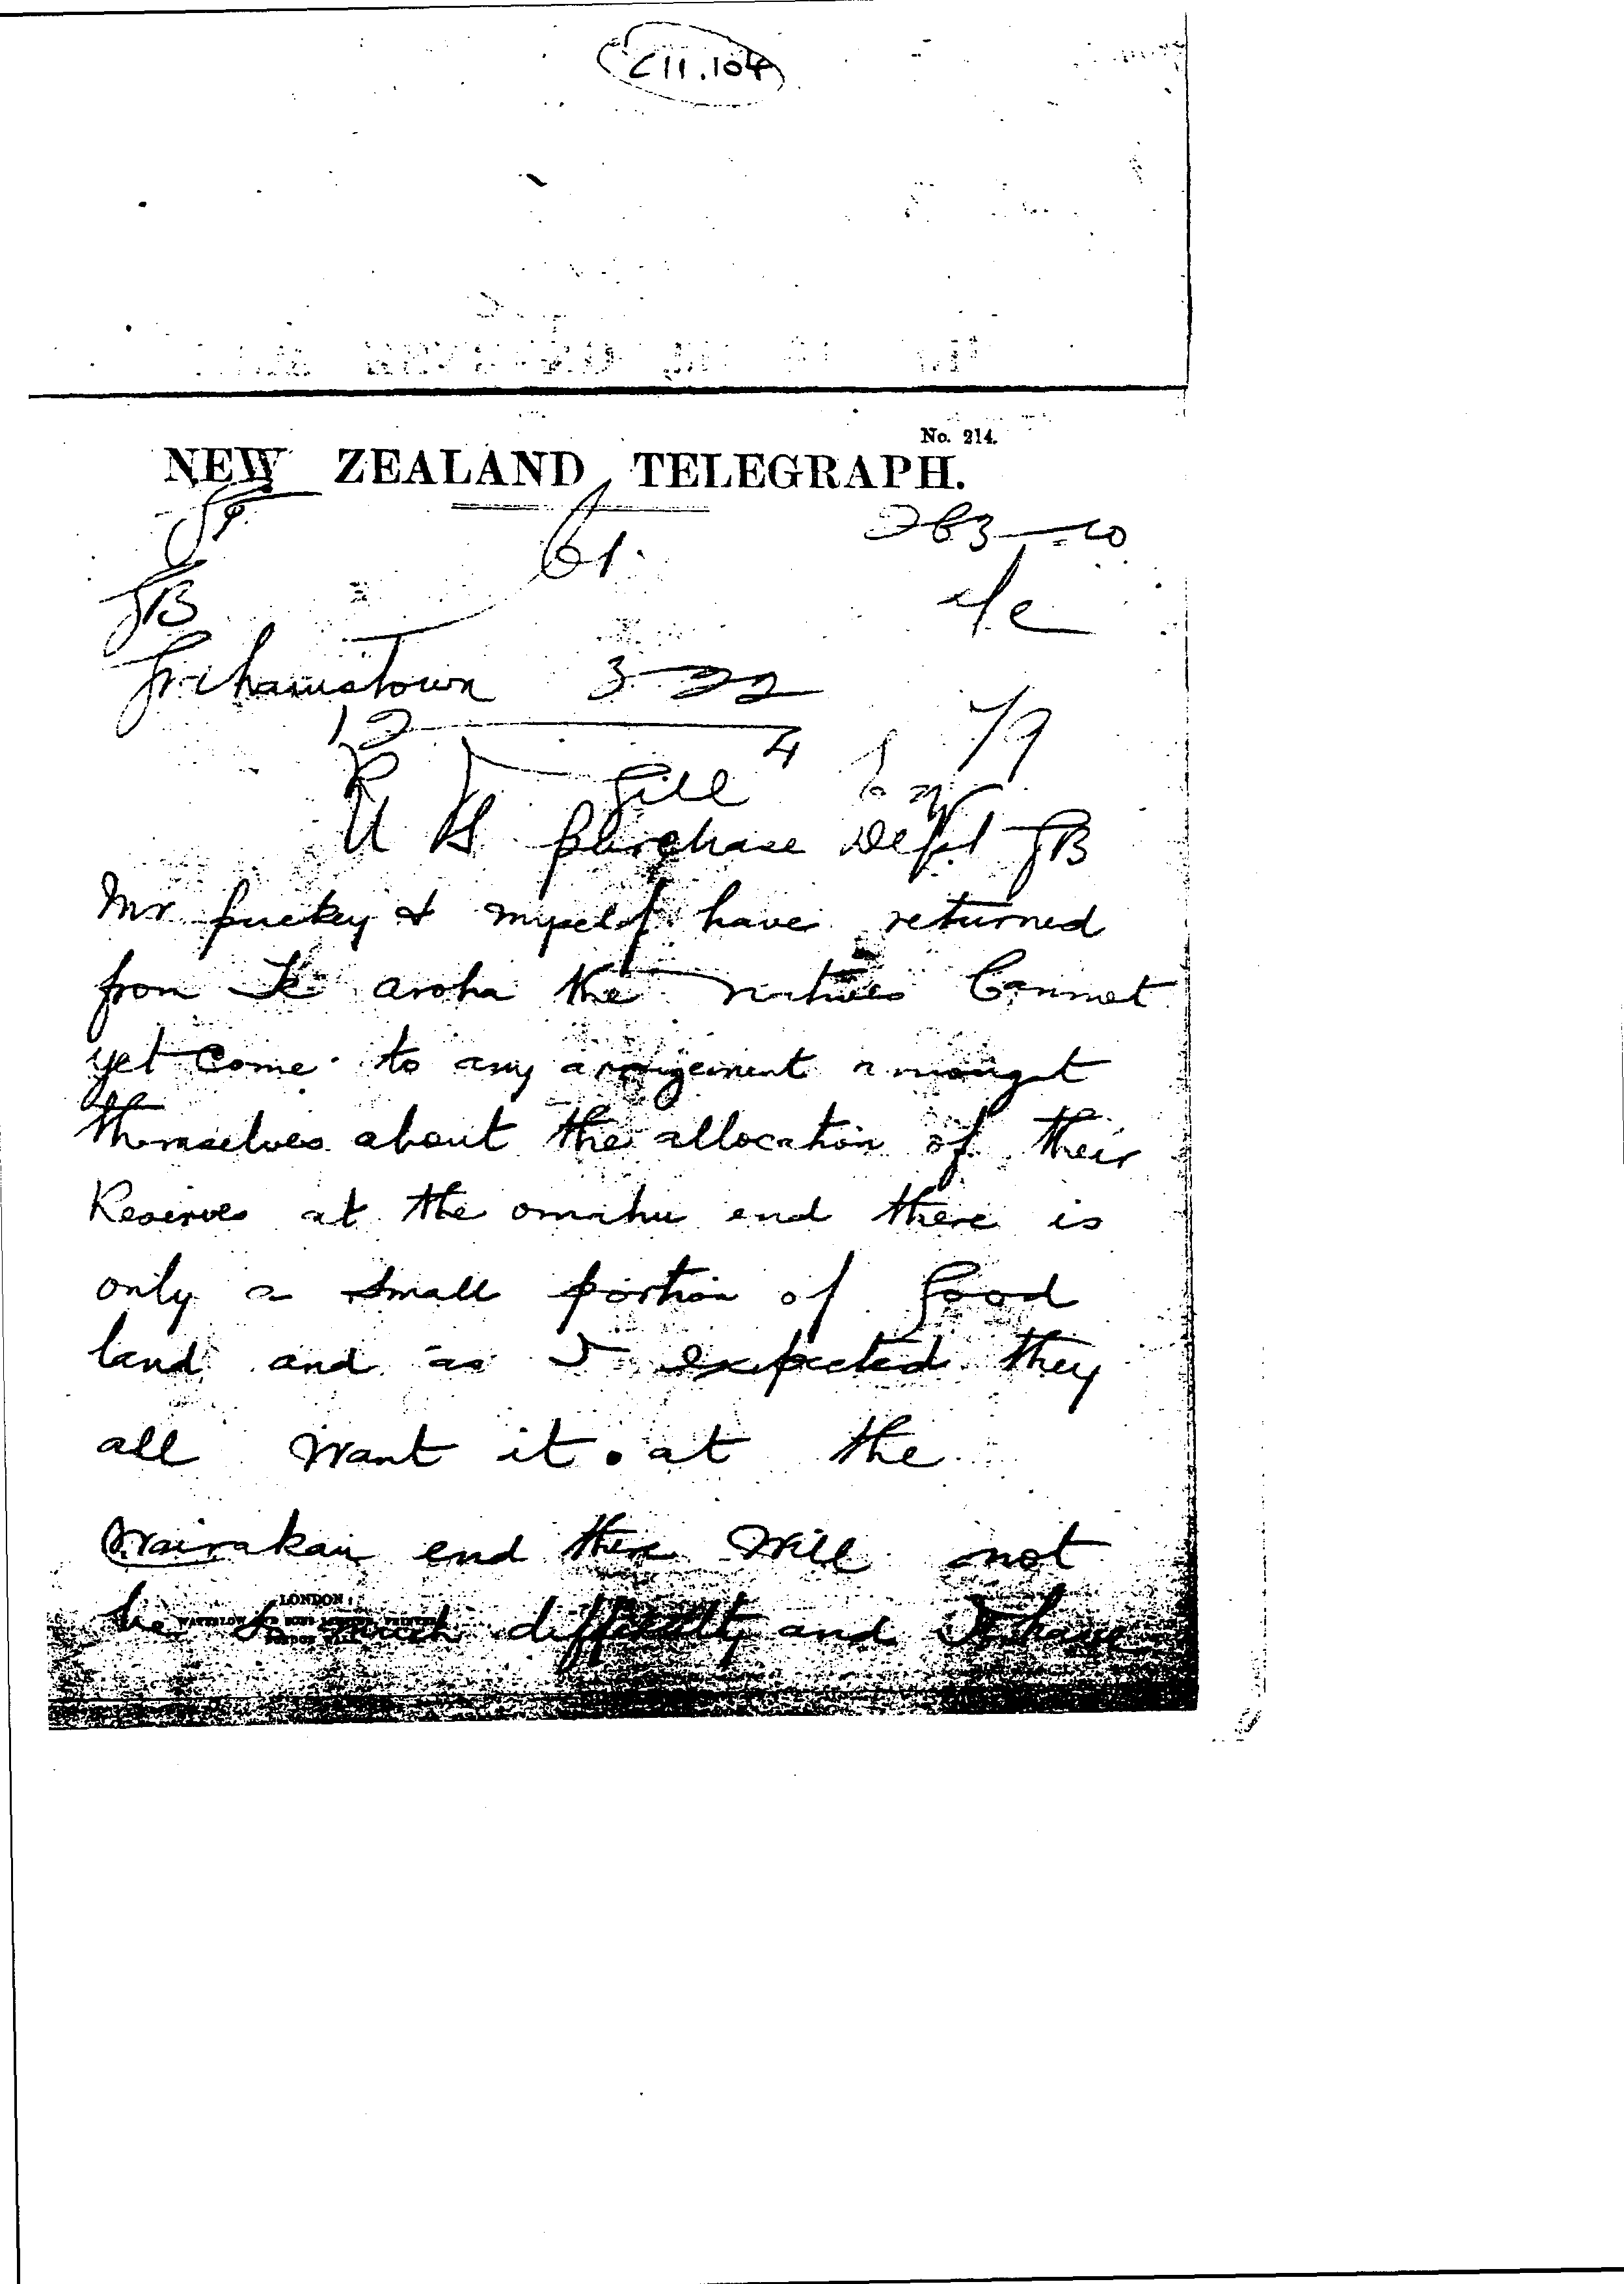 C11.104
No. 214.
NEW ZEALAND TELEGRAPH.
61.
Grahamstown 3-22
12 4 79
R J Gill
U S purchase Dept GB
Mr puckey & myself have returned
from Te aroha the natives Cannot
yet Come to any arrangement amongst
themselves about the allocation of their
Reserves at the omahu end there is
only a small portion of Good
land and as I expected they
all want it. at the
Wairakau end there will not
LONDON
be so much difficulty and I have